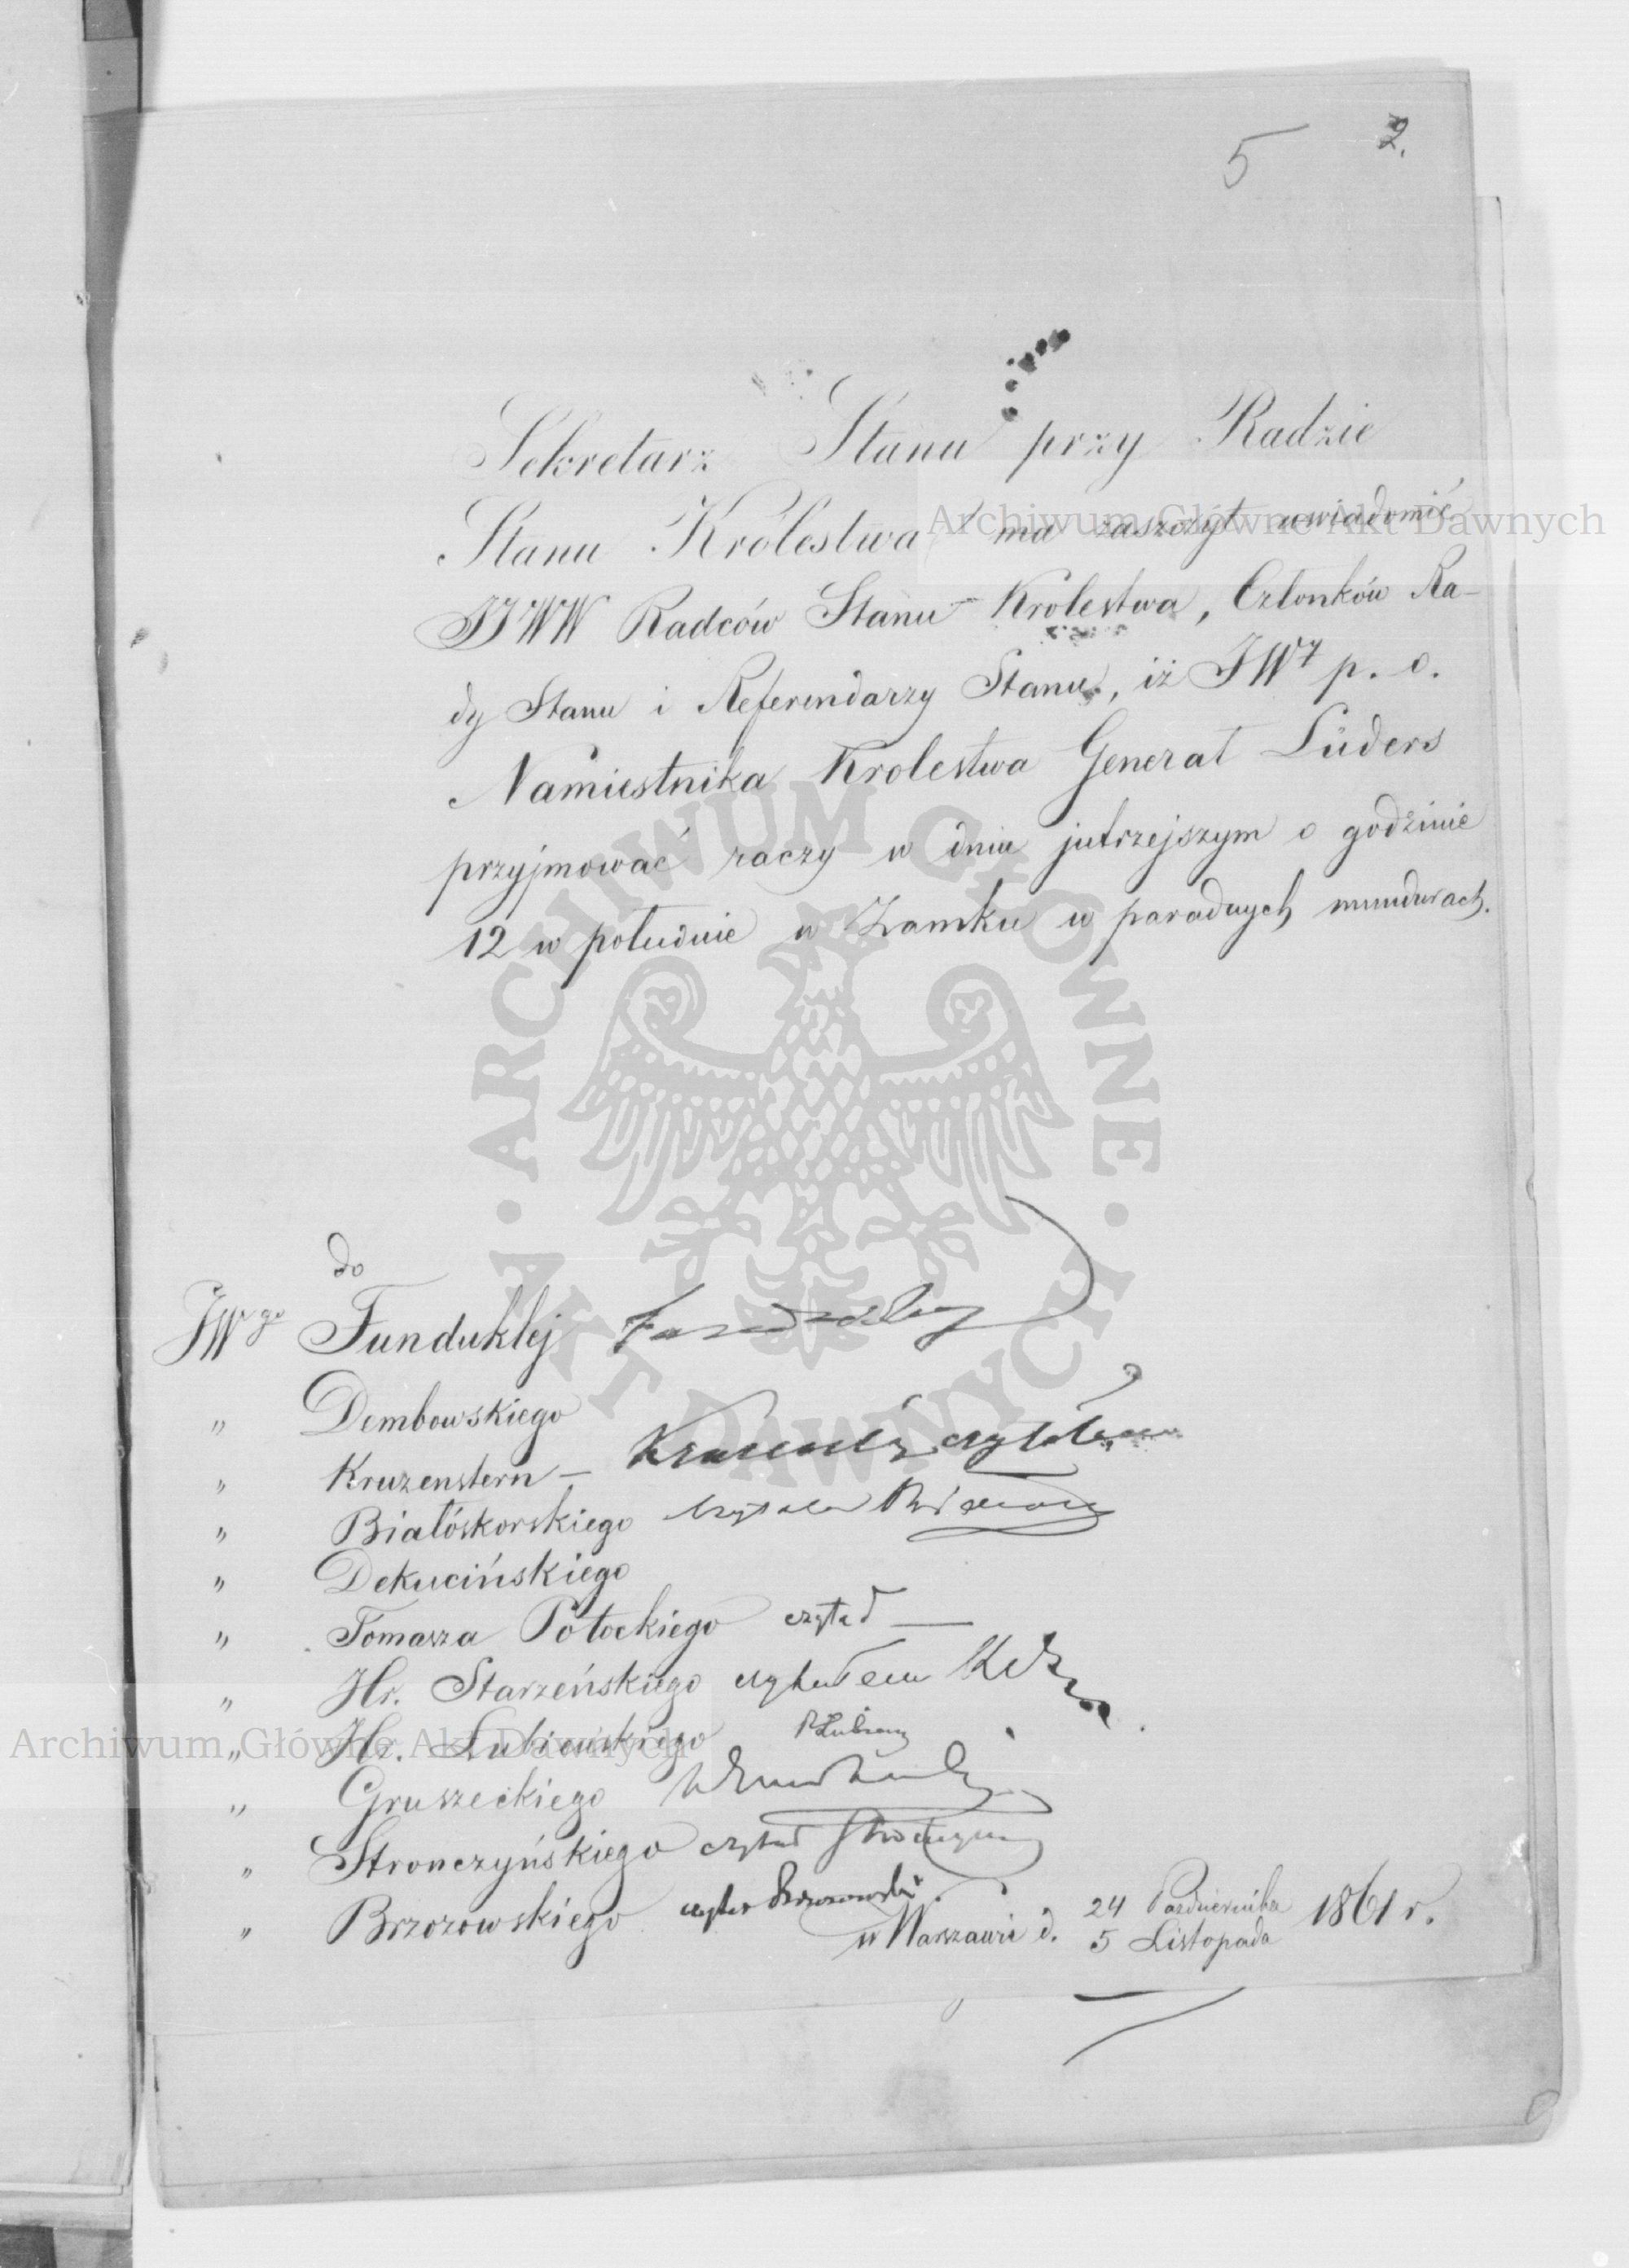 5 2.
Sekretarz Stanu przy Radzie
Stanu Królestwa ma zaszczyt uwiadomić
JJWW Radców Stanu Krolestwa, Członków Ra-
dy Stanu i Referendarzy Stanu, iż JWy p. o.
Namiestnika Krolestwa Generał Lüders
przyjmować raczy w dniu jutrzejszym o godzinie
12 w południe w Zamku w paradnych mundurach.
do
JWgo Funduklej
" Dembowskiego
" Kruzenstern – czytałem
" Białóskorskiego czytałem
" Dekucińskiego
" Tomasza Potockiego czytał —
" Hr. Starzeńskiego czytałem
" Hr. Łubieńskiego
" Gruszeckiego
" Stronczyńskiego czytał
" Brzozowskiego czytał Brzozowski
w Warszawie d. 24 Października
5 Listopada 1861 r.
Archiwum Główne Akt Dawnych
Archiwum Główne Akt Dawnych
ARCHIWUM GŁÓWNE
AKT DAWNYCH